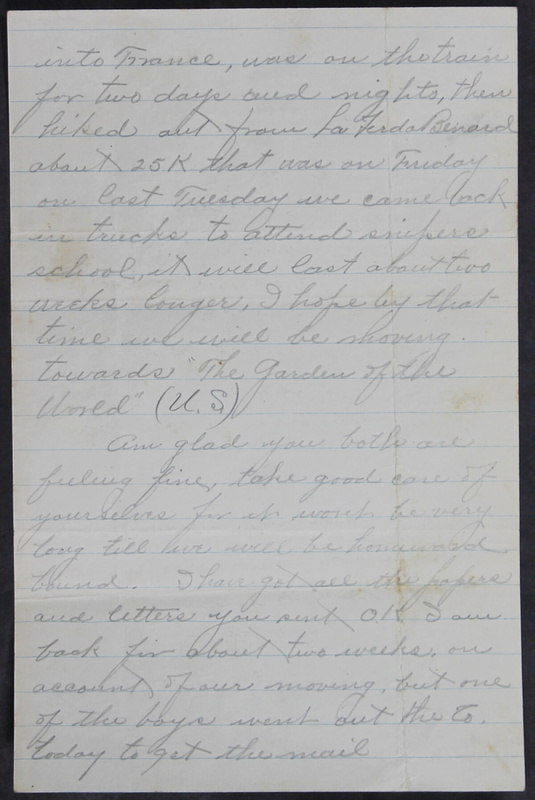 into France, was on the train
for two days and nights, then
hiked out from La Ferda Benard
about 25K that was on Friday
on last Tuesday we came back
in trucks to attend snipers
school, it will last about two
weeks longer, I hope by that
time we will be moving.
towards "The Garden of the
World" (U.S)
Am glad you both are
feeling fine, take good care of
yourselves for it wont be very
long till we will be homeward
bound. I have got all the papers
and letters you sent O.K I am
back for about two weeks, on
account of our moving, but one
of the boys went out the Co.
today to get the mail